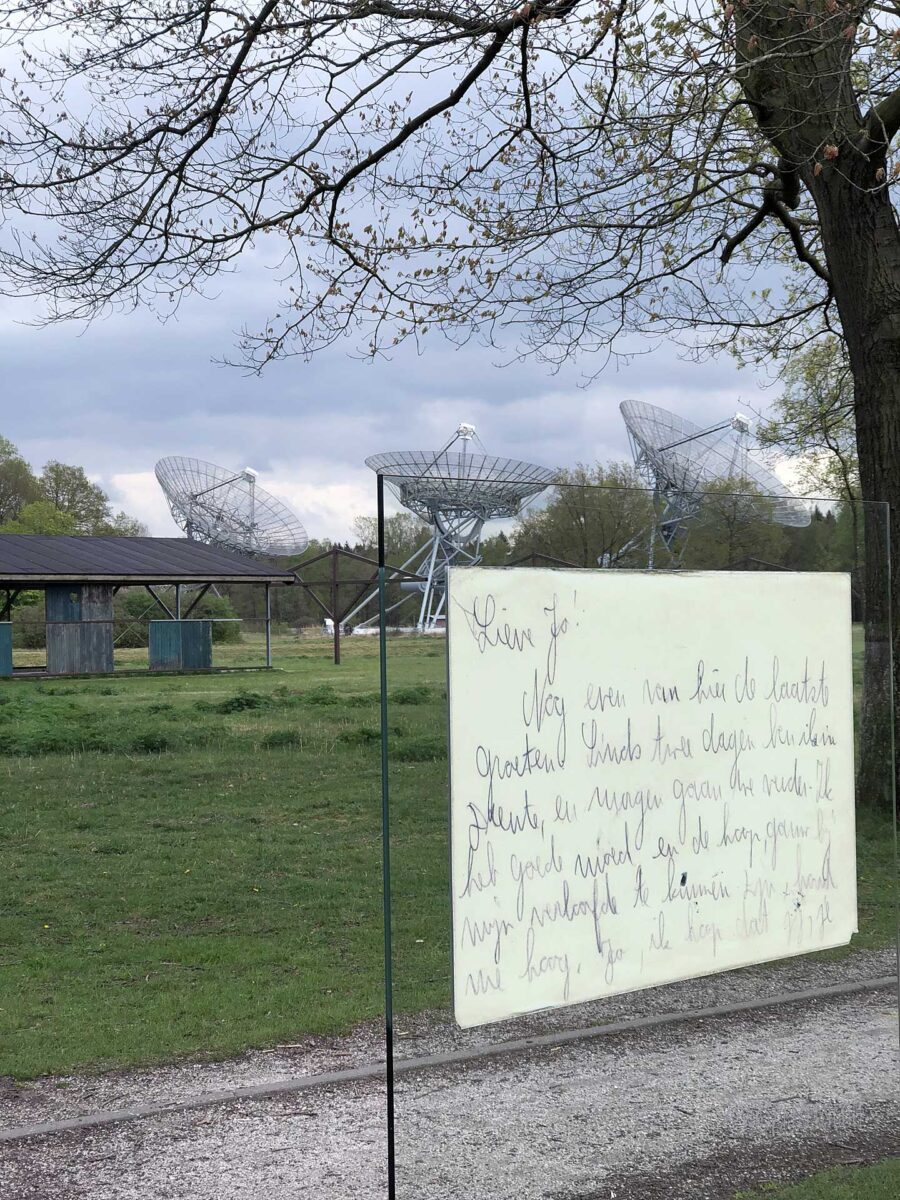 Lieve Jo!
Nog even van hier de laatste
groeten. Sinds twee dagen ben ik in
Drente, en morgen gaan we verder. Ik
heb goede moed en de hoop gauw bij
mijn verloofde te kunnen zijn. houd
me hoog. Jo, ik hoop dat jij, je